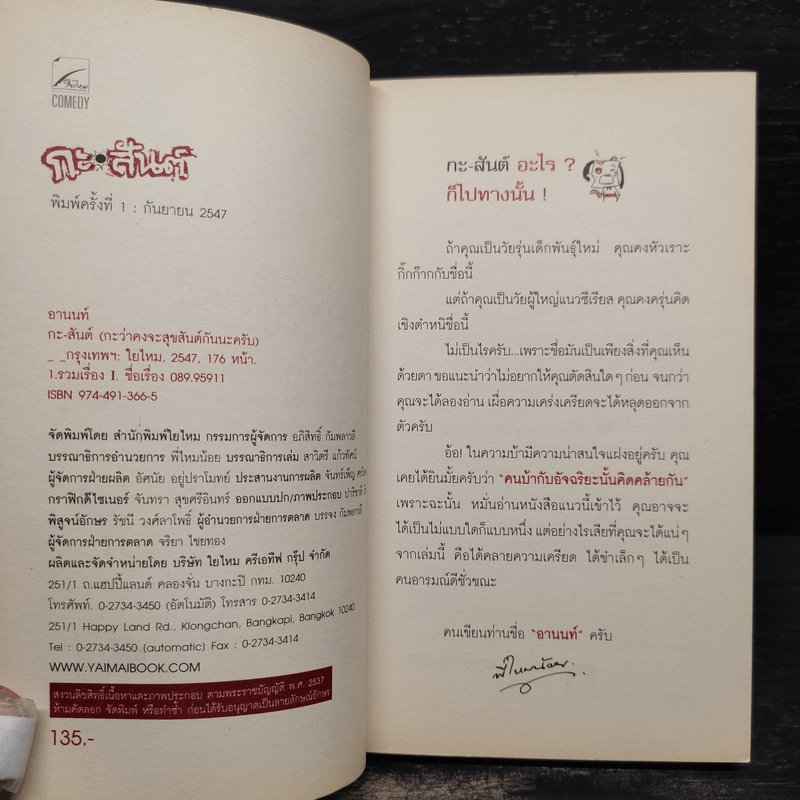 ใยไหม
COMEDY
กะ-สันต์
พิมพ์ครั้งที่ 1 : กันยายน 2547
อานนท์
กะ-สันต์ (กะว่าคงจะสุขสันต์กันนะครับ)
_ _กรุงเทพฯ: ใยไหม, 2547, 176 หน้า.
1.รวมเรื่อง I. ชื่อเรื่อง 089.95911
ISBN 974-491-366-5
จัดพิมพ์โดย สำนักพิมพ์ใยไหม กรรมการผู้จัดการ อภิสิทธิ์ กัมพลาวลี
บรรณาธิการอำนวยการ พี่ไหมน้อย บรรณาธิการเล่ม สาวิตรี แก้วทัศน์
ผู้จัดการฝ่ายผลิต อัศนัย อยู่ปราโมทย์ ประสานงานการผลิต จันทร์เพ็ญ
กราฟิกดีไซเนอร์ จันทรา สุขศรีอินทร์ ออกแบบปก/ภาพประกอบ ปาริชาติ
พิสูจน์อักษร รัชนี วงศ์ลาโพธิ์ ผู้อำนวยการฝ่ายการตลาด บรรจง กัมพลาวลี
ผู้จัดการฝ่ายการตลาด จริยา ไชยทอง
ผลิตและจัดจำหน่ายโดย บริษัท ใยไหม ครีเอทีฟ กรุ๊ป จำกัด
251/1 ถ.แฮปปี้แลนด์ คลองจั่น บางกะปิ กทม. 10240
โทรศัพท์. 0-2734-3450 (อัตโนมัติ) โทรสาร 0-2734-3414
251/1 Happy Land Rd., Klongchan, Bangkapi, Bangkok 10240
Tel : 0-2734-3450 (automatic) Fax : 0-2734-3414
WWW.YAIMAIBOOK.COM
สงวนลิขสิทธิ์เนื้อหาและภาพประกอบ ตามพระราชบัญญัติ พ.ศ. 2537
ห้ามคัดลอก จัดพิมพ์ หรือทำซ้ำ ก่อนได้รับอนุญาตเป็นลายลักษณ์อักษร
135.-
กะ-สันต์ อะไร ?
ก็ไปทางนั้น !
ถ้าคุณเป็นวัยรุ่นเด็กพันธุ์ใหม่ คุณคงหัวเราะ
กิ๊กก๊ากกับชื่อนี้
แต่ถ้าคุณเป็นวัยผู้ใหญ่แนวซีเรียส คุณคงครุ่นคิด
เชิงตำหนิชื่อนี้
ไม่เป็นไรครับ...เพราะชื่อมันเป็นเพียงสิ่งที่คุณเห็น
ด้วยตา ขอแนะนำว่าไม่อยากให้คุณตัดสินใดๆ ก่อน จนกว่า
คุณจะได้ลองอ่าน เผื่อความเคร่งเครียดจะได้หลุดออกจาก
ตัวครับ
อ้อ! ในความบ้ามีความน่าสนใจแฝงอยู่ครับ คุณ
เคยได้ยินมั้ยครับว่า "คนบ้ากับอัจฉริยะนั้นคิดคล้ายกัน"
เพราะฉะนั้น หมั่นอ่านหนังสือแนวนี้เข้าไว้ คุณอาจจะ
ได้เป็นไม่แบบใดก็แบบหนึ่ง แต่อย่างไรเสียที่คุณจะได้แน่ๆ
จากเล่มนี้ คือได้คลายความเครียด ได้ขำเล็กๆ ได้เป็น
คนอารมณ์ดีชั่วขณะ
คนเขียนท่านชื่อ "อานนท์" ครับ
พี่ไหมน้อย